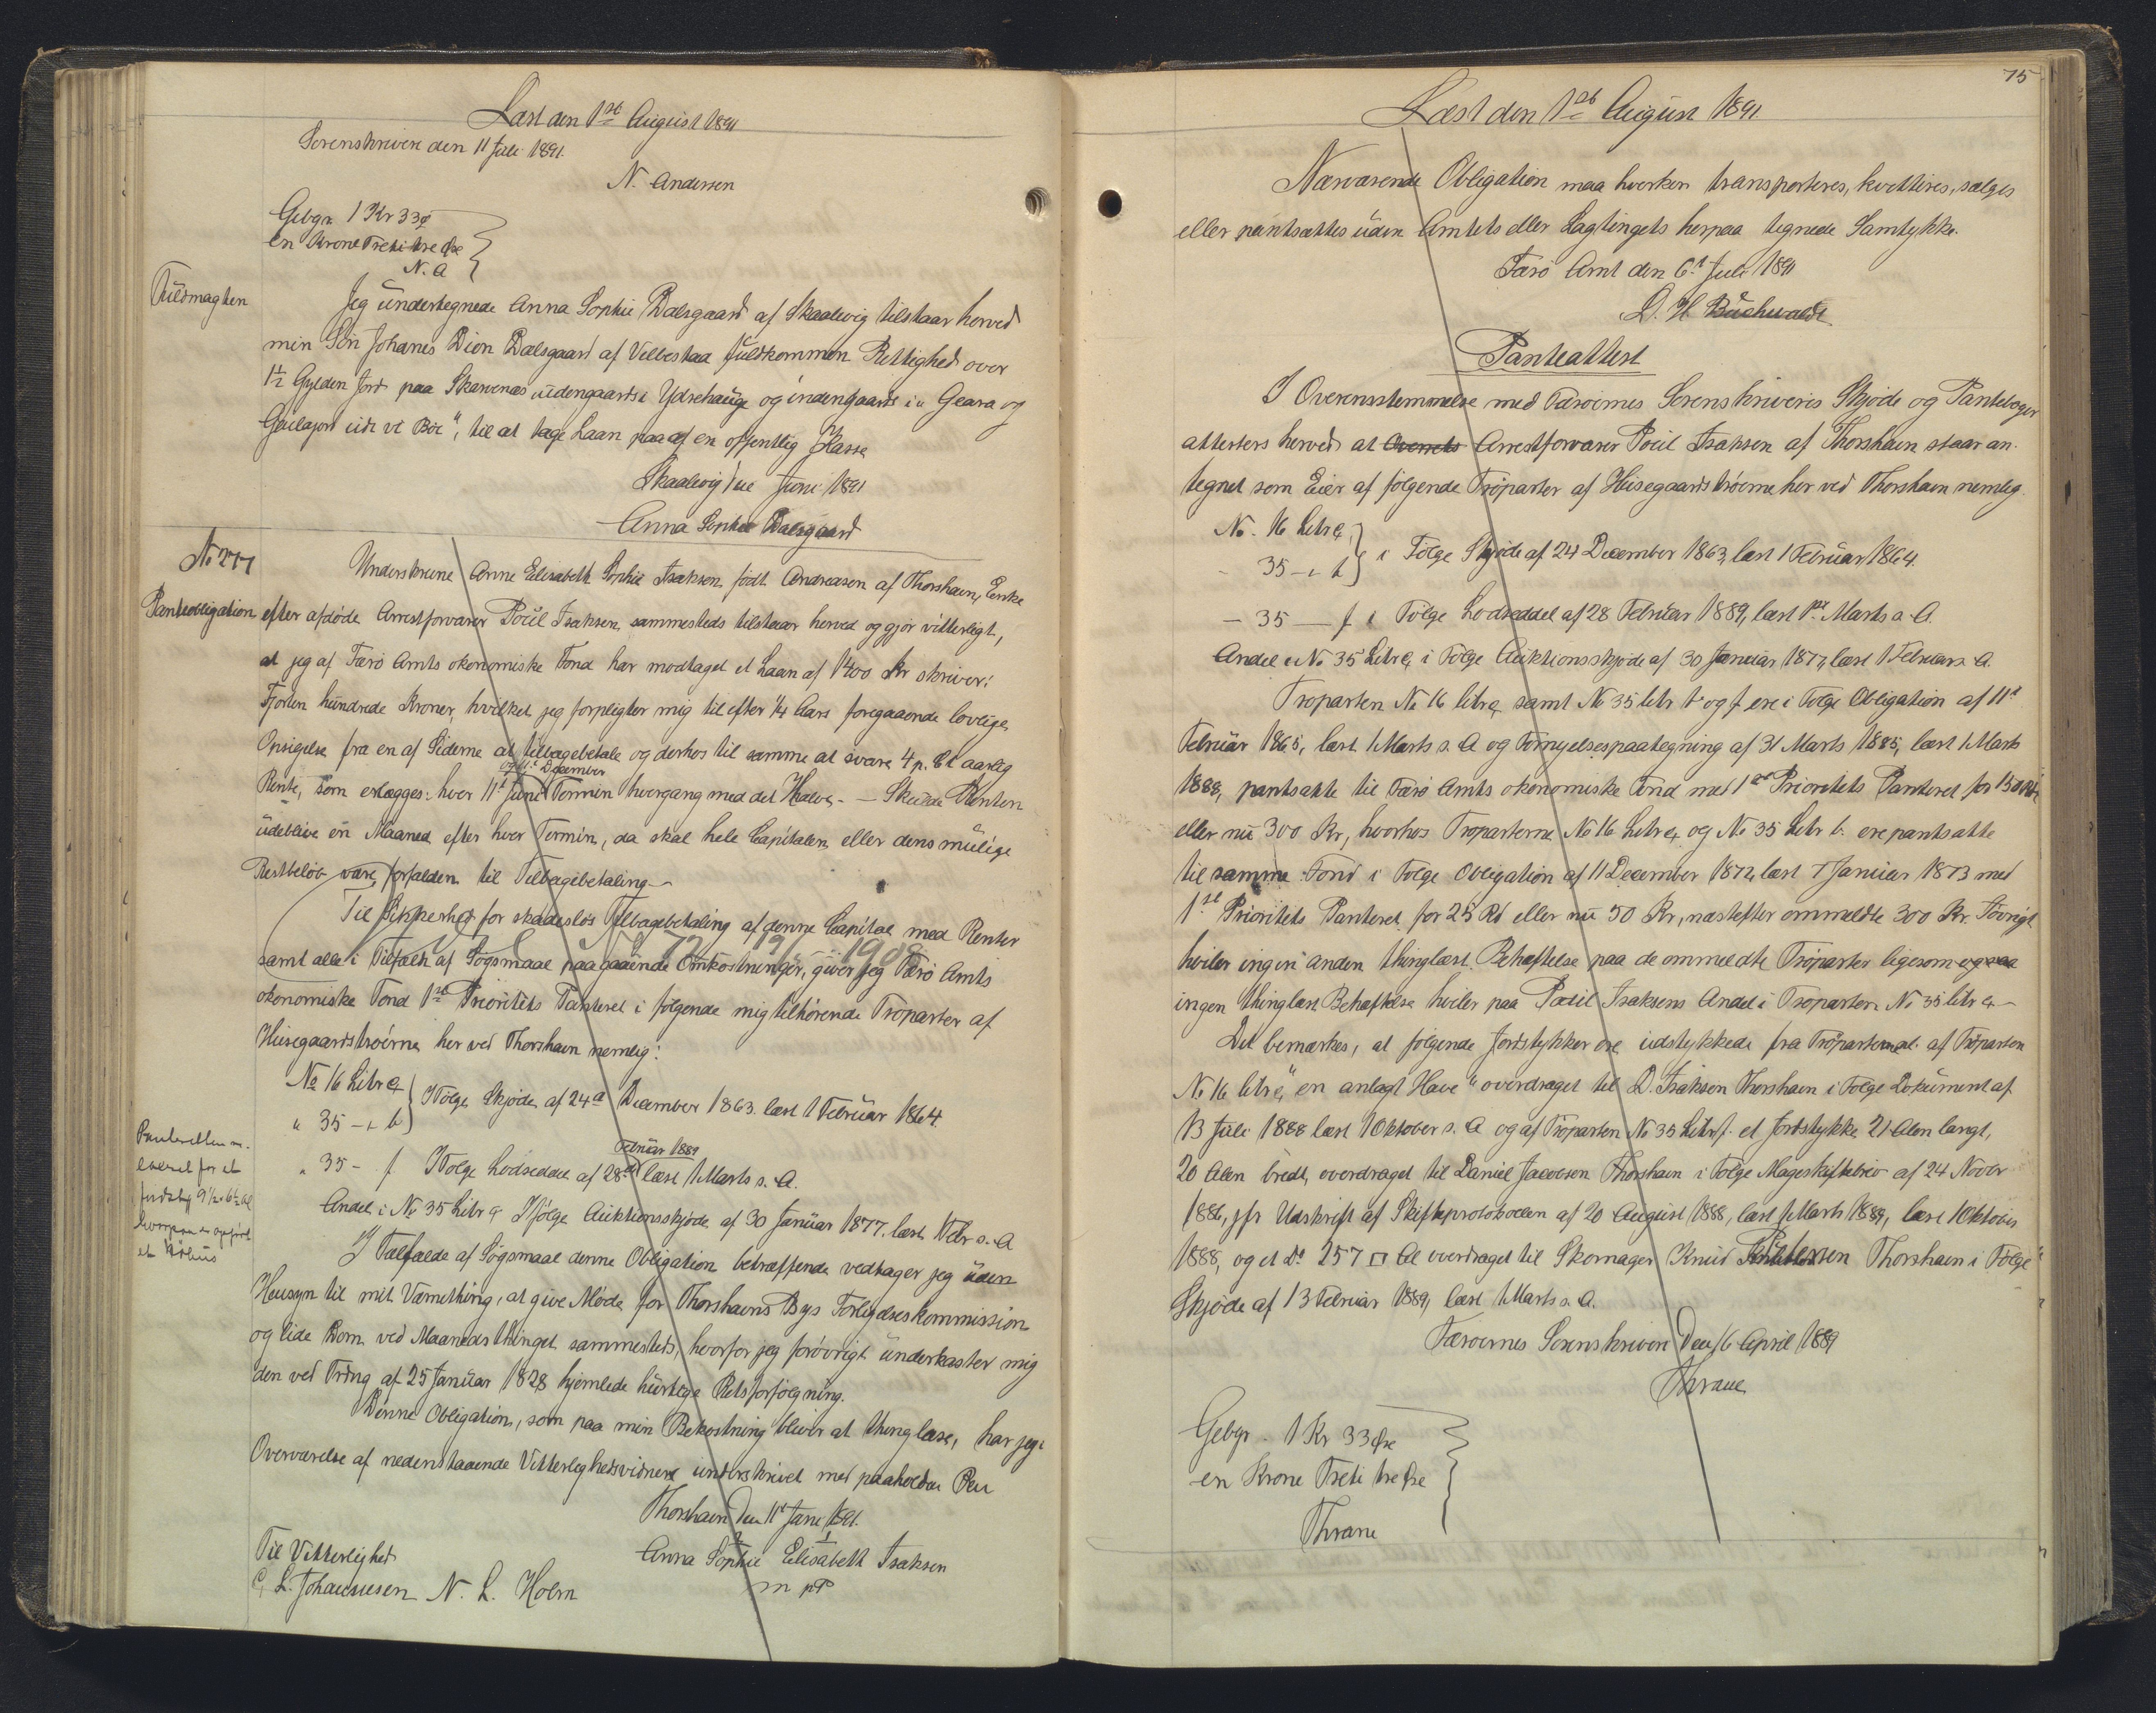 Læst den 1ste August 1891
Sorenskriveren den 11 Juli 1891.
N. Andersen
Gebyr 1 Kr 33 ø
en Krone Treti tre Øre
N. A
Fuldmagten
Jeg undertegnede Anna Sophie Dalsgaard af Skaalevig tilstaar herved
min Søn Johanes Dion Dalsgaard af Velbestad fuldkommen Rettighed over
1½ Gylden Jord paa Skarvenæs udengaards i Ydrehauge og indengaards i „ Geara og
til at tage Laan paa af en offentlig Kasse
Skaalevig den Juni 1891
Anna Sophie Dalsgaard
No 277
Panteobligation
Underskrevne Anne Elisabeth Sophie Isaksen født Andreasen af Thorshavn, Enke
efter afdøde Arrestforvarer Poul Isaksen sammesteds tilstaar herved og gjør vitterligt,
at jeg af Færø Amts økonomiske Fond har modtaget et Laan af 1400 Kr skriver:
Fjorten hundrede Kroner, hvilket jeg forpligter mig til efter ¼ Aars foregaaende lovlige
Opsigelse fra en af Siderne at tilbagebetale og derhos til samme at svare 4 p. Ct aarlig
og 11t December
Rente, som erlægges hver 11t Juni Termin hvergang med det Halve. — Skulde Renten
udeblive en Maaned efter hver Termin, da skal hele Capitalen eller dens mulige
Restbeløb være forfalden til Tilbagebetaling —
Til Sikkerhed for skadesløs Tilbagebetaling af denne Capital med Renter
samt alle i Tilfælde af Søgsmaal paagaaende Omkostninger, giver jeg Færø Amts
1908
økonomiske Fond 1ste Prioritets Panteret i følgende mig tilhørende Trøparter af
Husegaardstrøerne her ved Thorshavn nemlig:
No 16 Litr a
„ 35 - „ b
I Følge Skjøde af 24d December 1863. læst 1 Februar 1864
Februar 1889
„ 35 - f I Følge Lodseddel af 28de læst 1 Marts s. A.
Andel i No 35 Litr a I følge Auktionsskjøde af 30 Januar 1877. læst 1 Febr s. A
Panteretten
for et
9½ x 6½ Al
hvorpaa er opført
et
I Tilfælde af Søgsmaal denne Obligation betræffende vedtager jeg uden
Hensyn til mit Værnething, at give Møde for Thorshavns Bys Forligelseskommission
og lide Dom ved Maanedsthinget sammesteds, hvorfor jeg forøvrigt underkaster mig
den ved Frdng af 25 Januar 1828 hjemlede hurtige Retsforfølgning.
Denne Obligation, som paa min Bekostning bliver at thinglæse, har jeg i
Overværelse af nedenstaaende Vitterlighedsvidner underskrevet med paaholden Pen
Thorshavn den 11t Juni 1891.
2 1
Anna Sophie Elisabeth Isaksen
m p P
Til Vitterlighed
L. Johannesen N. L. Holm
75
Læst den 1ste August 1891
Nærværende Obligation maa hverken transporteres, kvitteres, sælges
eller pantsættes uden Amtets eller Lagtingets herpaa tegnede Samtykke.
Færø Amt den 6t Juli 1891
D. H. Buchwaldt
Panteattest
I Overensstemmelse med Færøernes Sorenskriveris Skjøde og Pantebøger
attesteres herved at Arrestforvarer Poul Isaksen af Thorshavn staar an-
tegnet som Eier af følgende Trøparter af Husegaardstrøerne her ved Thorshavn nemlig
No. 16 Litr a,
- 35 - „ b
i Følge Skjøde af 24 December 1863, læst 1 Februar 1864.
- 35 — f i Følge Lodseddel af 28 Februar 1889, læst 1ste Marts s. A.
Andel i No 35 Litr a i Følge Auktionsskjøde af 30 Januar 1877, læst 1 Februar s. A.
Trøparten No 16 litr a samt No 35 litr b og f ere i Følge Obligation af 11t
Februar 1865, læst 1 Marts s. A og Fornyelsespaategning af 31 Marts 1885, læst 1 Marts
1888, pantsatte til Færø Amts økonomiske Fond med 1ste Prioritets Panteret for 150 Rd
eller nu 300 Kr, hvorhos Trøparterne No 16 Litr a og No 35 Litr b. ere pantsatte
til samme Fond i Følge Obligation af 11 December 1872, læst 7 Januar 1873 med
1ste Prioritets Panteret for 25 Rd eller nu 50 Kr, næstefter ommeldte 300 Kr. Iøvrigt
hviler ingen anden thinglæst Behæftelse paa de ommeldte Trøparter ligesom
ingen thinglæst Behæftelse hviler paa Poul Isaksens Andel i Trøparten No 35 litr a —
Det bemærkes, at følgende Jordstykker ere udstykkede fra Trøparterne af Trøparten
No 16 litr a, „en anlagt Have“ overdraget til D. Isaksen Thorshavn i Følge Dokument af
13 Juli 1888 læst 1 Oktober s. A og af Trøparten No 35 Litr f. et Jordstykke 21 Alen langt,
20 Alen bredt, overdraget til Daniel Jacobsen Thorshavn i Følge Mageskiftebrev af 24 Novbr
1886, jfr Udskrift af Skifteprotokollen af 20 August 1888, læst 1 Marts 1889, læst 1 Oktober
1888, og et Do 257 □ Al overdraget til Skomager Knud Thorshavn i Følge
Skjøde af 13 Februar 1889, læst 1 Marts s. A.
Færøernes Sorenskriveri Den 16 April 1889
Thrane
Gebyr - 1 Kr 33 Øre
en Krone Treti tre Øre
Thrane